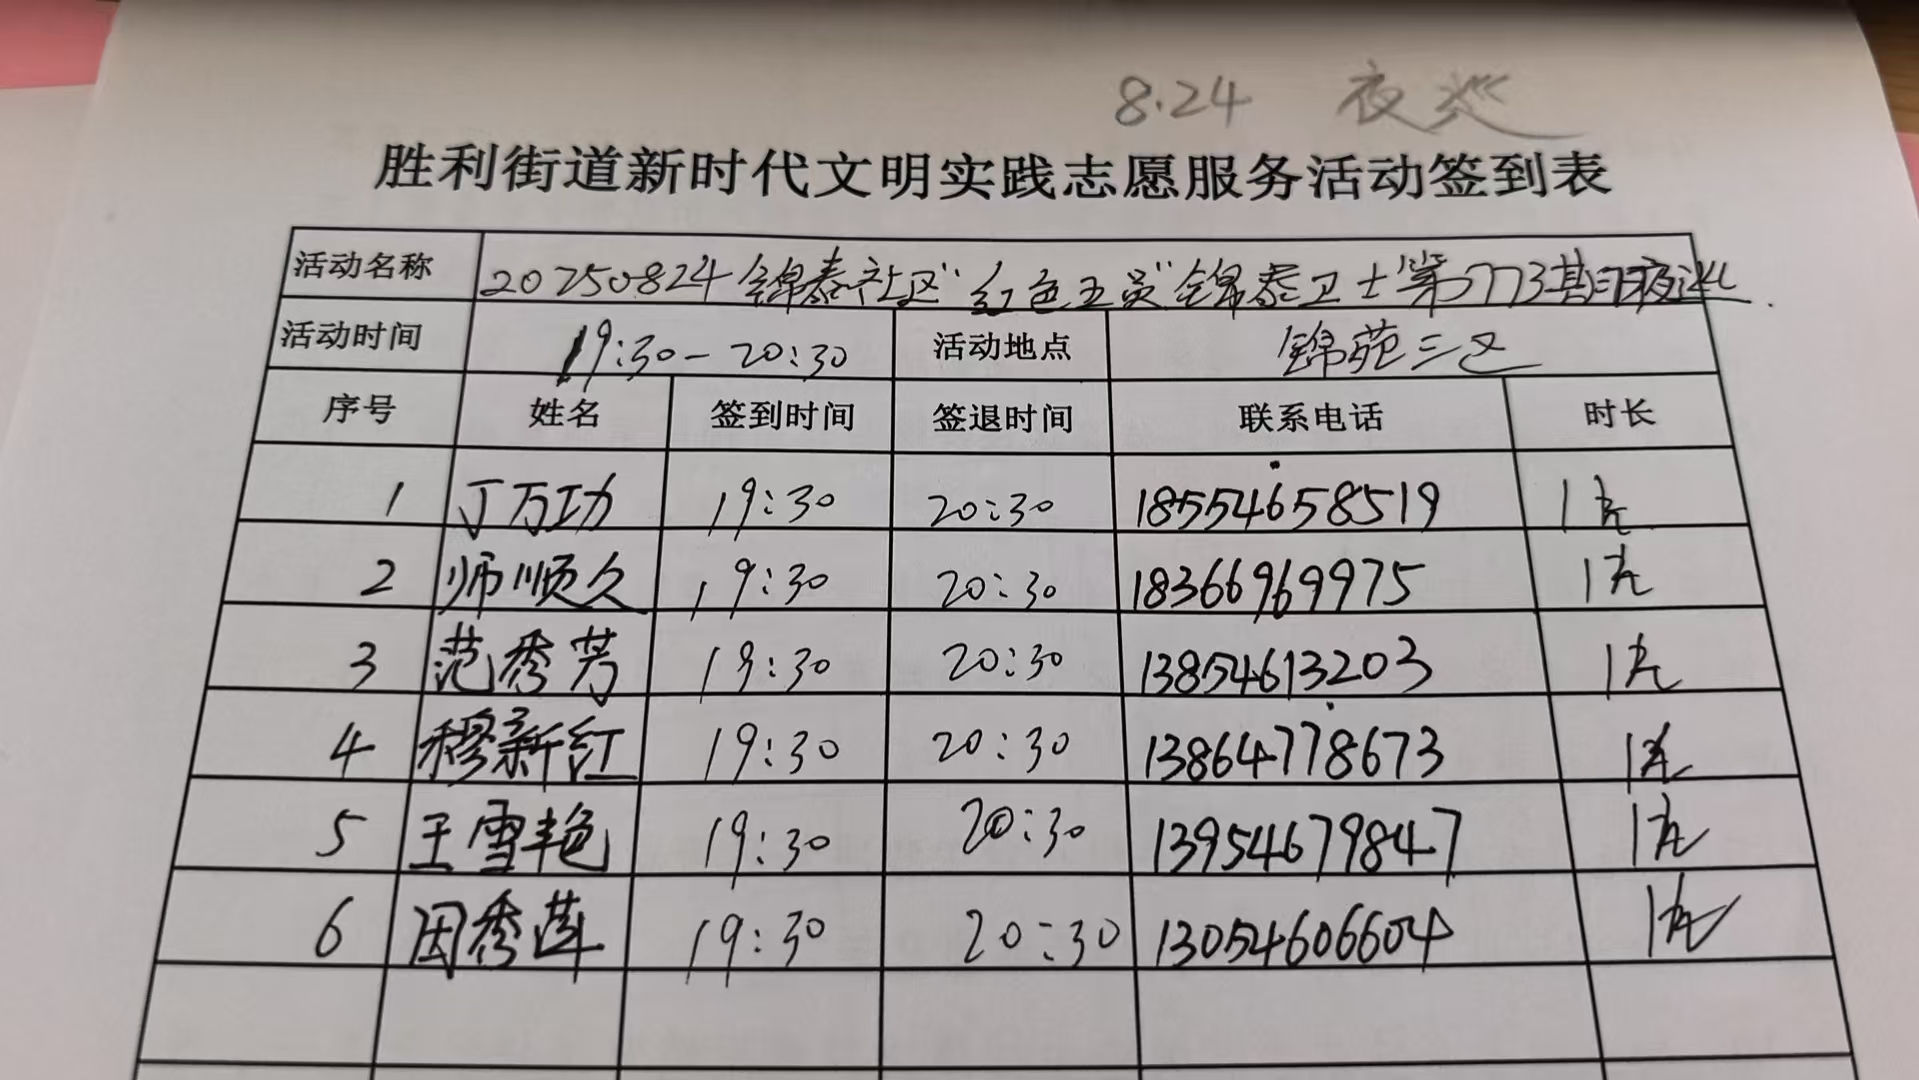 8.24 夜巡
胜利街道新时代文明实践志愿服务活动签到表
活动名称 20250824锦泰社区"红色五员"锦泰卫士第773期夜巡.
活动时间 19:30-20:30 活动地点 锦苑三区
序号 姓名 签到时间 签退时间 联系电话 时长
1 丁万功 19:30 20:30 18554658519 1
2 师顺久 19:30 20:30 18366969975 1
3 范秀芳 19:30 20:30 13854613203 1
4 穆新红 19:30 20:30 13864778673 1
5 王雪艳 19:30 20:30 13954679847 1
6 田秀莲 19:30 20:30 13054606604 1